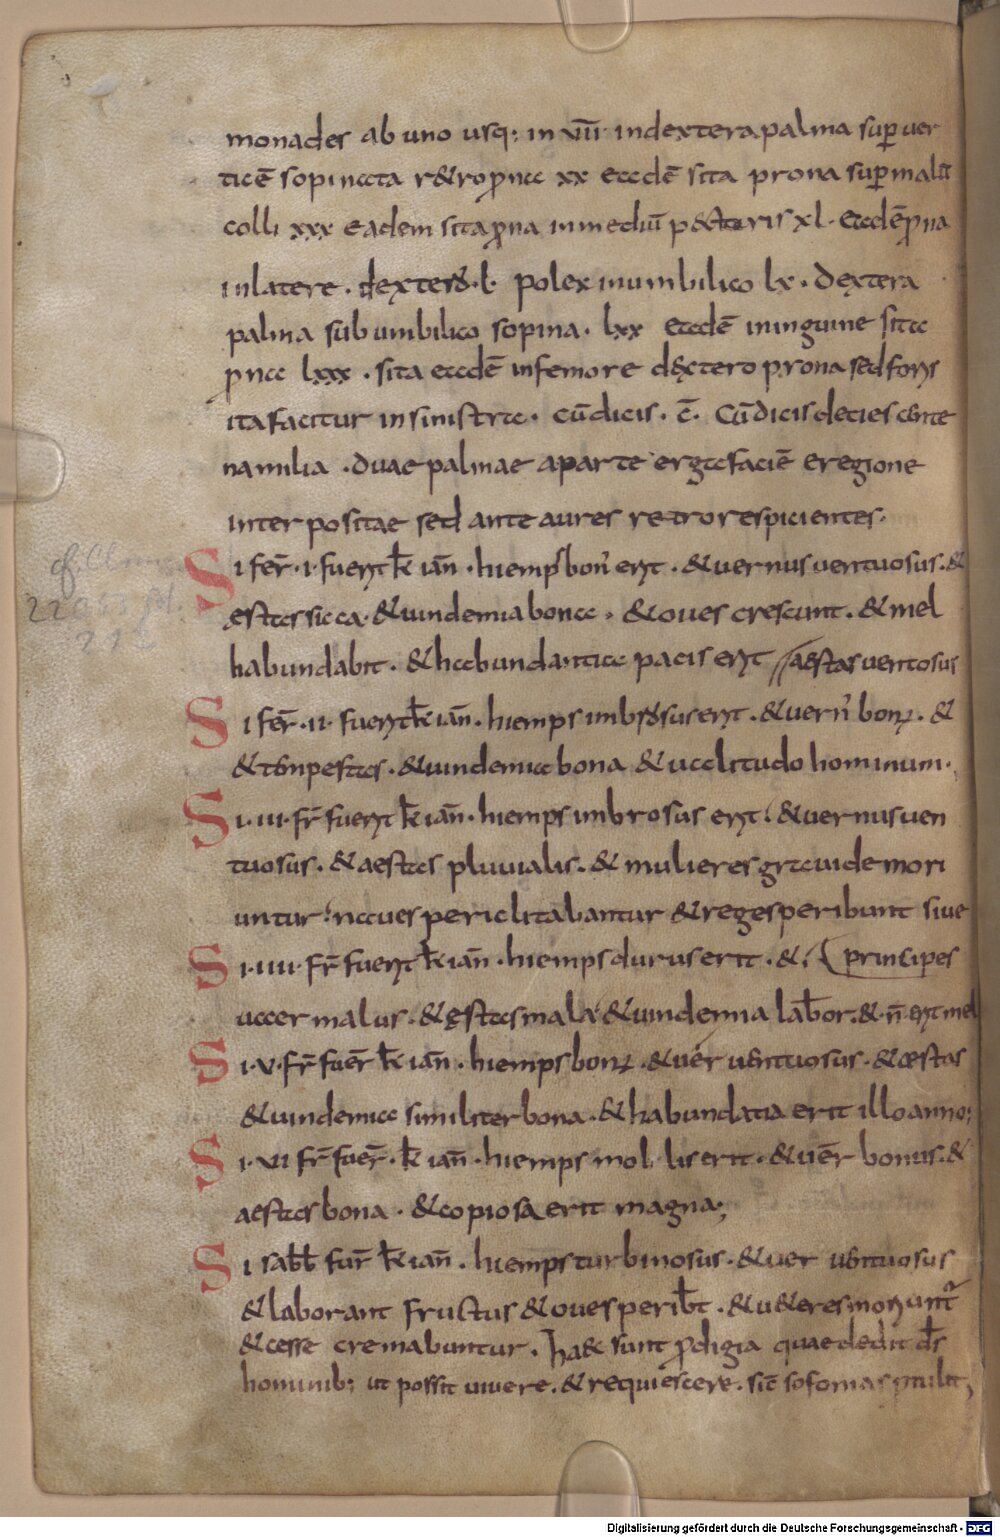 monades ab uno usq; in viiii in dextera palma sup uer
ticē sopinata r&ro p̄na xx eadē sita prona sup malā
colli xxx eadem sita p̄na in mediū p&toris xl. eadē p̄na
in latere . dextero . l . polex in umbilico lx . dextera
palma sub umbilico sopina . lxx eadē in inguine sita
p̄na lxxx . sita eadē in femore dextero prona sed foris
ita facitur in sinistra . cū dicis . c̄ . Cū dicis decies cente
na milia . duae palmae aparte erga faciē eregione
inter positae sed ante aures retro respicientes .
Si fer̄ . i . fuerit k̄ iañ . hiemps bon' erit . & uernus uentuosus . &
aestas sicca . & uindemia bona . & oues crescunt . & mel
habundabit . & habundantia pacis erit // aestas uentosus
Si fer̄ . ii . fuerit k̄ iañ . hiemps imbrosus erit . & uern' bonꝰ . &
& tempestas . & uindemia bona & ualitudo hominum .
Si . iii . fr̄ fuerit k̄ iañ . hiemps imbrosus erit . & uernus uen
tuosus . & aestas pluuialis . & mulieres grauide mori
untur . naues periclitabantur & reges peribunt siue
Si . iiii . fr̄ fuerit k̄ iañ . hiemps durus erit . & principes
uacer malus . & aestas mala & uindemia labor . & n̄ erit mel
Si . v . fr̄ fuer̄ k̄ iañ . hiemps bonꝰ . & uer uentuosus . & aestas
& uindemia similiter bona . & habundatia erit illo anno;
Si . vi fr̄ fuer̄ . k̄ iañ . hiemps mollis erit . & uēr bonus . &
aestas bona . & copiosa erit magna;
Si sabb̄ fur̄ k̄ iañ . hiemps turbinosus . & uer uentuosus
& laborant fructus & oues perib̄t . & u&eres moriunt̄
& cesse cremabuntur . haec sunt p̄digia quae dedit dn̄s
hominib; ut possit uiuere . & requiescere . sic̄ sofornias p̄tulit;
cf. Clm
Digitalisierung gefördert durch die Deutsche Forschungsgemeinschaft - DFG